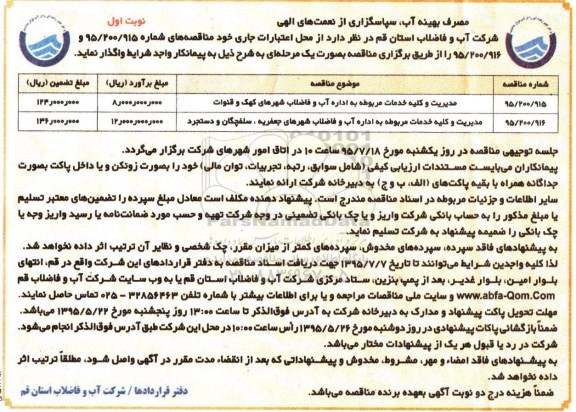 مصرف بهینه آب، سپاسگزاری از نعمت‌های الهی
نوبت اول
شرکت آب و فاضلاب استان قم در نظر دارد از محل اعتبارات جاری خود مناقصه‌های شماره ۹۵/۲۰۰/۹۱۵ و
۹۵/۲۰۰/۹۱۶ را از طریق برگزاری مناقصه بصورت یک مرحله‌ای به شرح ذیل به پیمانکار واجد شرایط واگذار نماید.
شماره مناقصه موضوع مناقصه مبلغ برآورد (ریال) مبلغ تضمین (ریال)
۹۵/۲۰۰/۹۱۵ مدیریت و کلیه خدمات مربوطه به اداره آب و فاضلاب شهرهای کهک و قنوات ۸٫۰۰۰٫۰۰۰٫۰۰۰ ۱۲۴٫۰۰۰٫۰۰۰
۹۵/۲۰۰/۹۱۶ مدیریت و کلیه خدمات مربوطه به اداره آب و فاضلاب شهرهای جعفریه ، سلفچگان و دستجرد ۱۲٫۰۰۰٫۰۰۰٫۰۰۰ ۱۴۶٫۰۰۰٫۰۰۰
جلسه توجیهی مناقصه در روز یکشنبه مورخ ۹۵/۷/۱۸ ساعت ۱۰ در اتاق امور شهرهای شرکت برگزار می‌گردد.
پیمانکاران می‌بایست مستندات ارزیابی کیفی (شامل سوابق، رتبه، تجربیات، توان مالی) خود را بصورت زونکن و یا داخل پاکت بصورت
جداگانه همراه با بقیه پاکت‌های (الف، ب و ج) به دبیرخانه شرکت ارائه نمایند.
سایر اطلاعات و جزئیات مربوطه در اسناد مناقصه مندرج است. پیشنهاد دهنده مکلف است معادل مبلغ سپرده را تضمین‌های معتبر تسلیم
یا مبلغ مذکور را به حساب بانکی شرکت واریز و یا چک بانکی تضمینی در وجه شرکت تهیه و حسب مورد ضمانت‌نامه یا رسید واریز وجه یا
چک بانکی را ضمیمه پیشنهاد به شرکت تسلیم نماید.
به پیشنهادهای فاقد سپرده، سپرده‌های مخدوش، سپرده‌های کمتر از میزان مقرر، چک شخصی و نظایر آن ترتیب اثر داده نخواهد شد.
لذا کلیه واجدین شرایط می‌توانند تا تاریخ ۱۳۹۵/۷/۷ جهت دریافت اسناد مناقصه به دفتر قراردادهای این شرکت واقع در قم، انتهای
بلوار امین، بلوار غدیر، بعد از پمپ بنزین، ستاد مرکزی شرکت آب و فاضلاب استان قم یا به وب سایت شرکت آب و فاضلاب قم
www.abfa-Qom.Com و سایت ملی مناقصات مراجعه و یا برای اطلاعات بیشتر با شماره تلفن ۳۲۸۵۶۴۶۳ - ۰۲۵ تماس حاصل نمایند.
مهلت تحویل پاکت پیشنهاد و مدارک به دبیرخانه شرکت به آدرس فوق‌الذکر تا ساعت ۱۳:۰۰ روز پنجشنبه مورخ ۱۳۹۵/۵/۲۲ می‌باشد.
ضمناً بازگشائی پاکات پیشنهادی در روز دوشنبه مورخ ۱۳۹۵/۵/۲۶ رأس ساعت ۱۰:۰۰ در محل این شرکت طبق آدرس فوق‌الذکر انجام می‌شود.
شرکت در رد یا قبول هر یک از پیشنهادات مختار می‌باشد.
به پیشنهادهای فاقد امضاء و مهر، مشروط، مخدوش و پیشنهاداتی که بعد از انقضاء مدت مقرر در آگهی واصل شود، مطلقاً ترتیب اثر
داده نخواهد شد.
ضمناً هزینه درج دو نوبت آگهی بعهده برنده مناقصه می‌باشد.
دفتر قراردادها / شرکت آب و فاضلاب استان قم